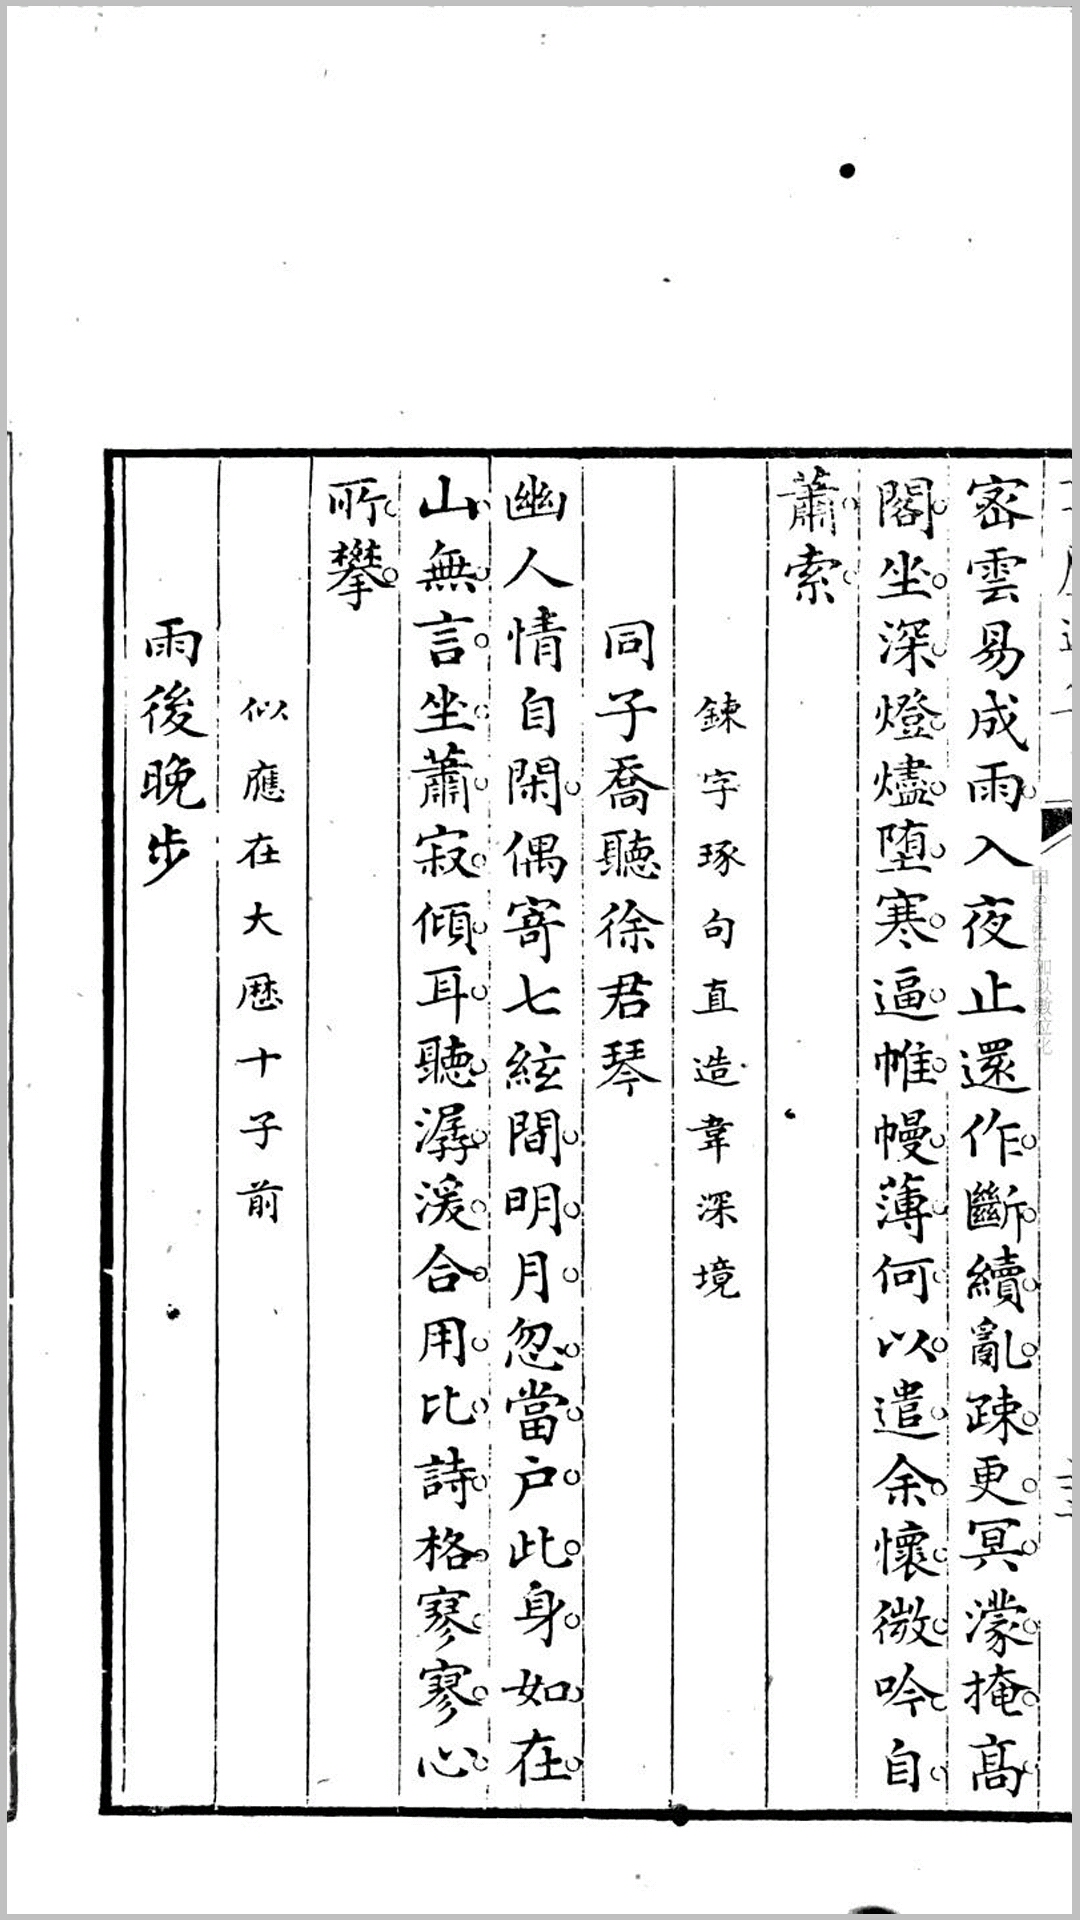 密雲易成雨入夜止還作斷續亂疎更冥濛掩髙
閣坐深燈燼墮寒逼帷幔薄何以遣余懷微吟自
蕭索
鍊字琢句直造韋深境
同子喬聽徐君琴
幽人情自閑偶寄七絃間明月忽當户此身如在
山無言坐蕭寂傾耳聽潺湲合用比詩格寥寥心
所攀
似應在大歷十子前
雨後晚步
由 Google 加以數位化